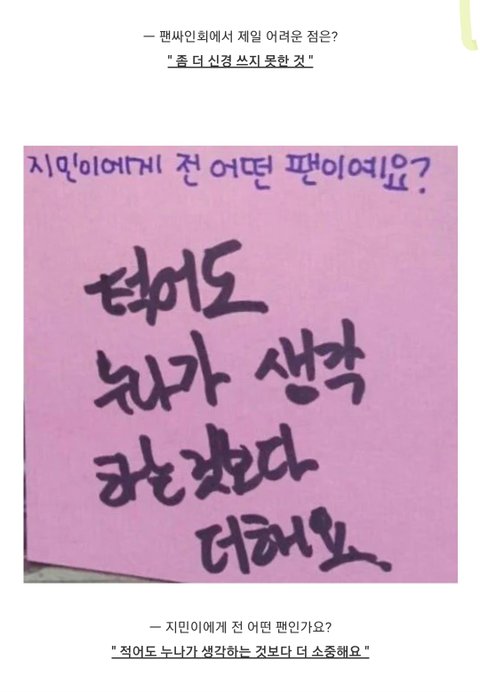 ㅡ 팬싸인회에서 제일 어려운 점은?
" 좀 더 신경 쓰지 못한 것 "
지민이에게 전 어떤 팬이예요?
적어도
누나가 생각
하는 것보다
더해요.
ㅡ 지민이에게 전 어떤 팬인가요?
" 적어도 누나가 생각하는 것보다 더 소중해요 "